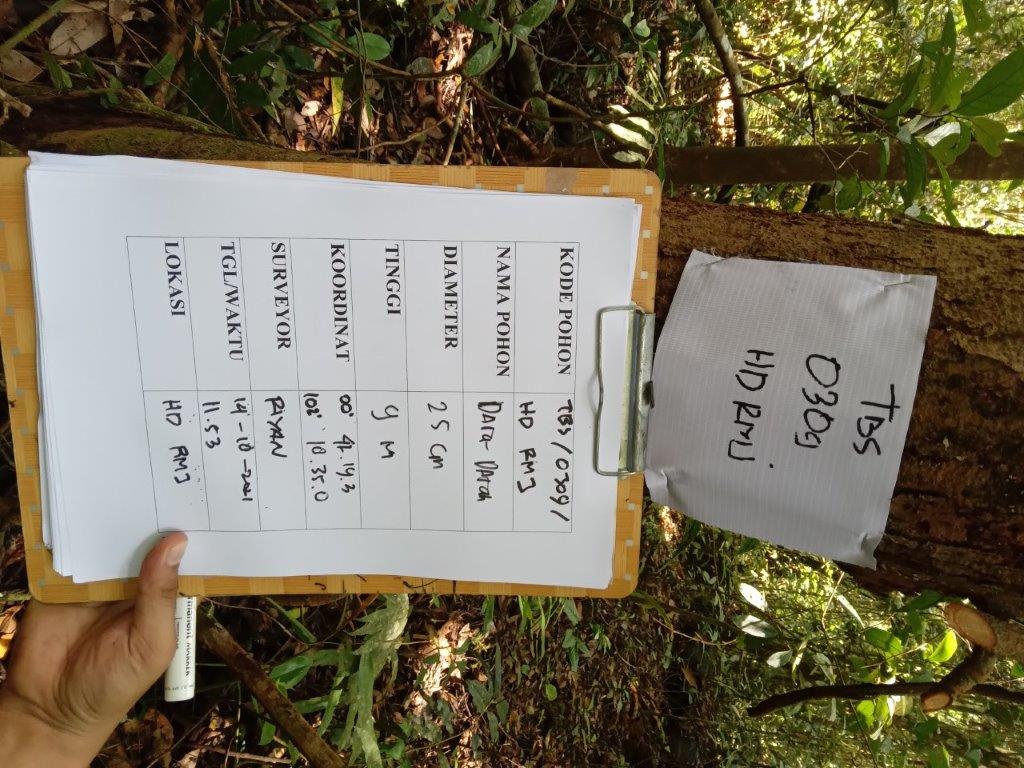 TBS
0309
HD RMJ
KODE POHON TBS/0309/
HD RMJ
NAMA POHON DArA- DArah
DIAMETER 25 cm
TINGGI 9 M
KOORDINAT 00° 42.19.3
102° 10.35.0
SURVEYOR RIYAN
TGL/WAKTU 14-10-2021
11.53
LOKASI HD RMJ
manent MARKER